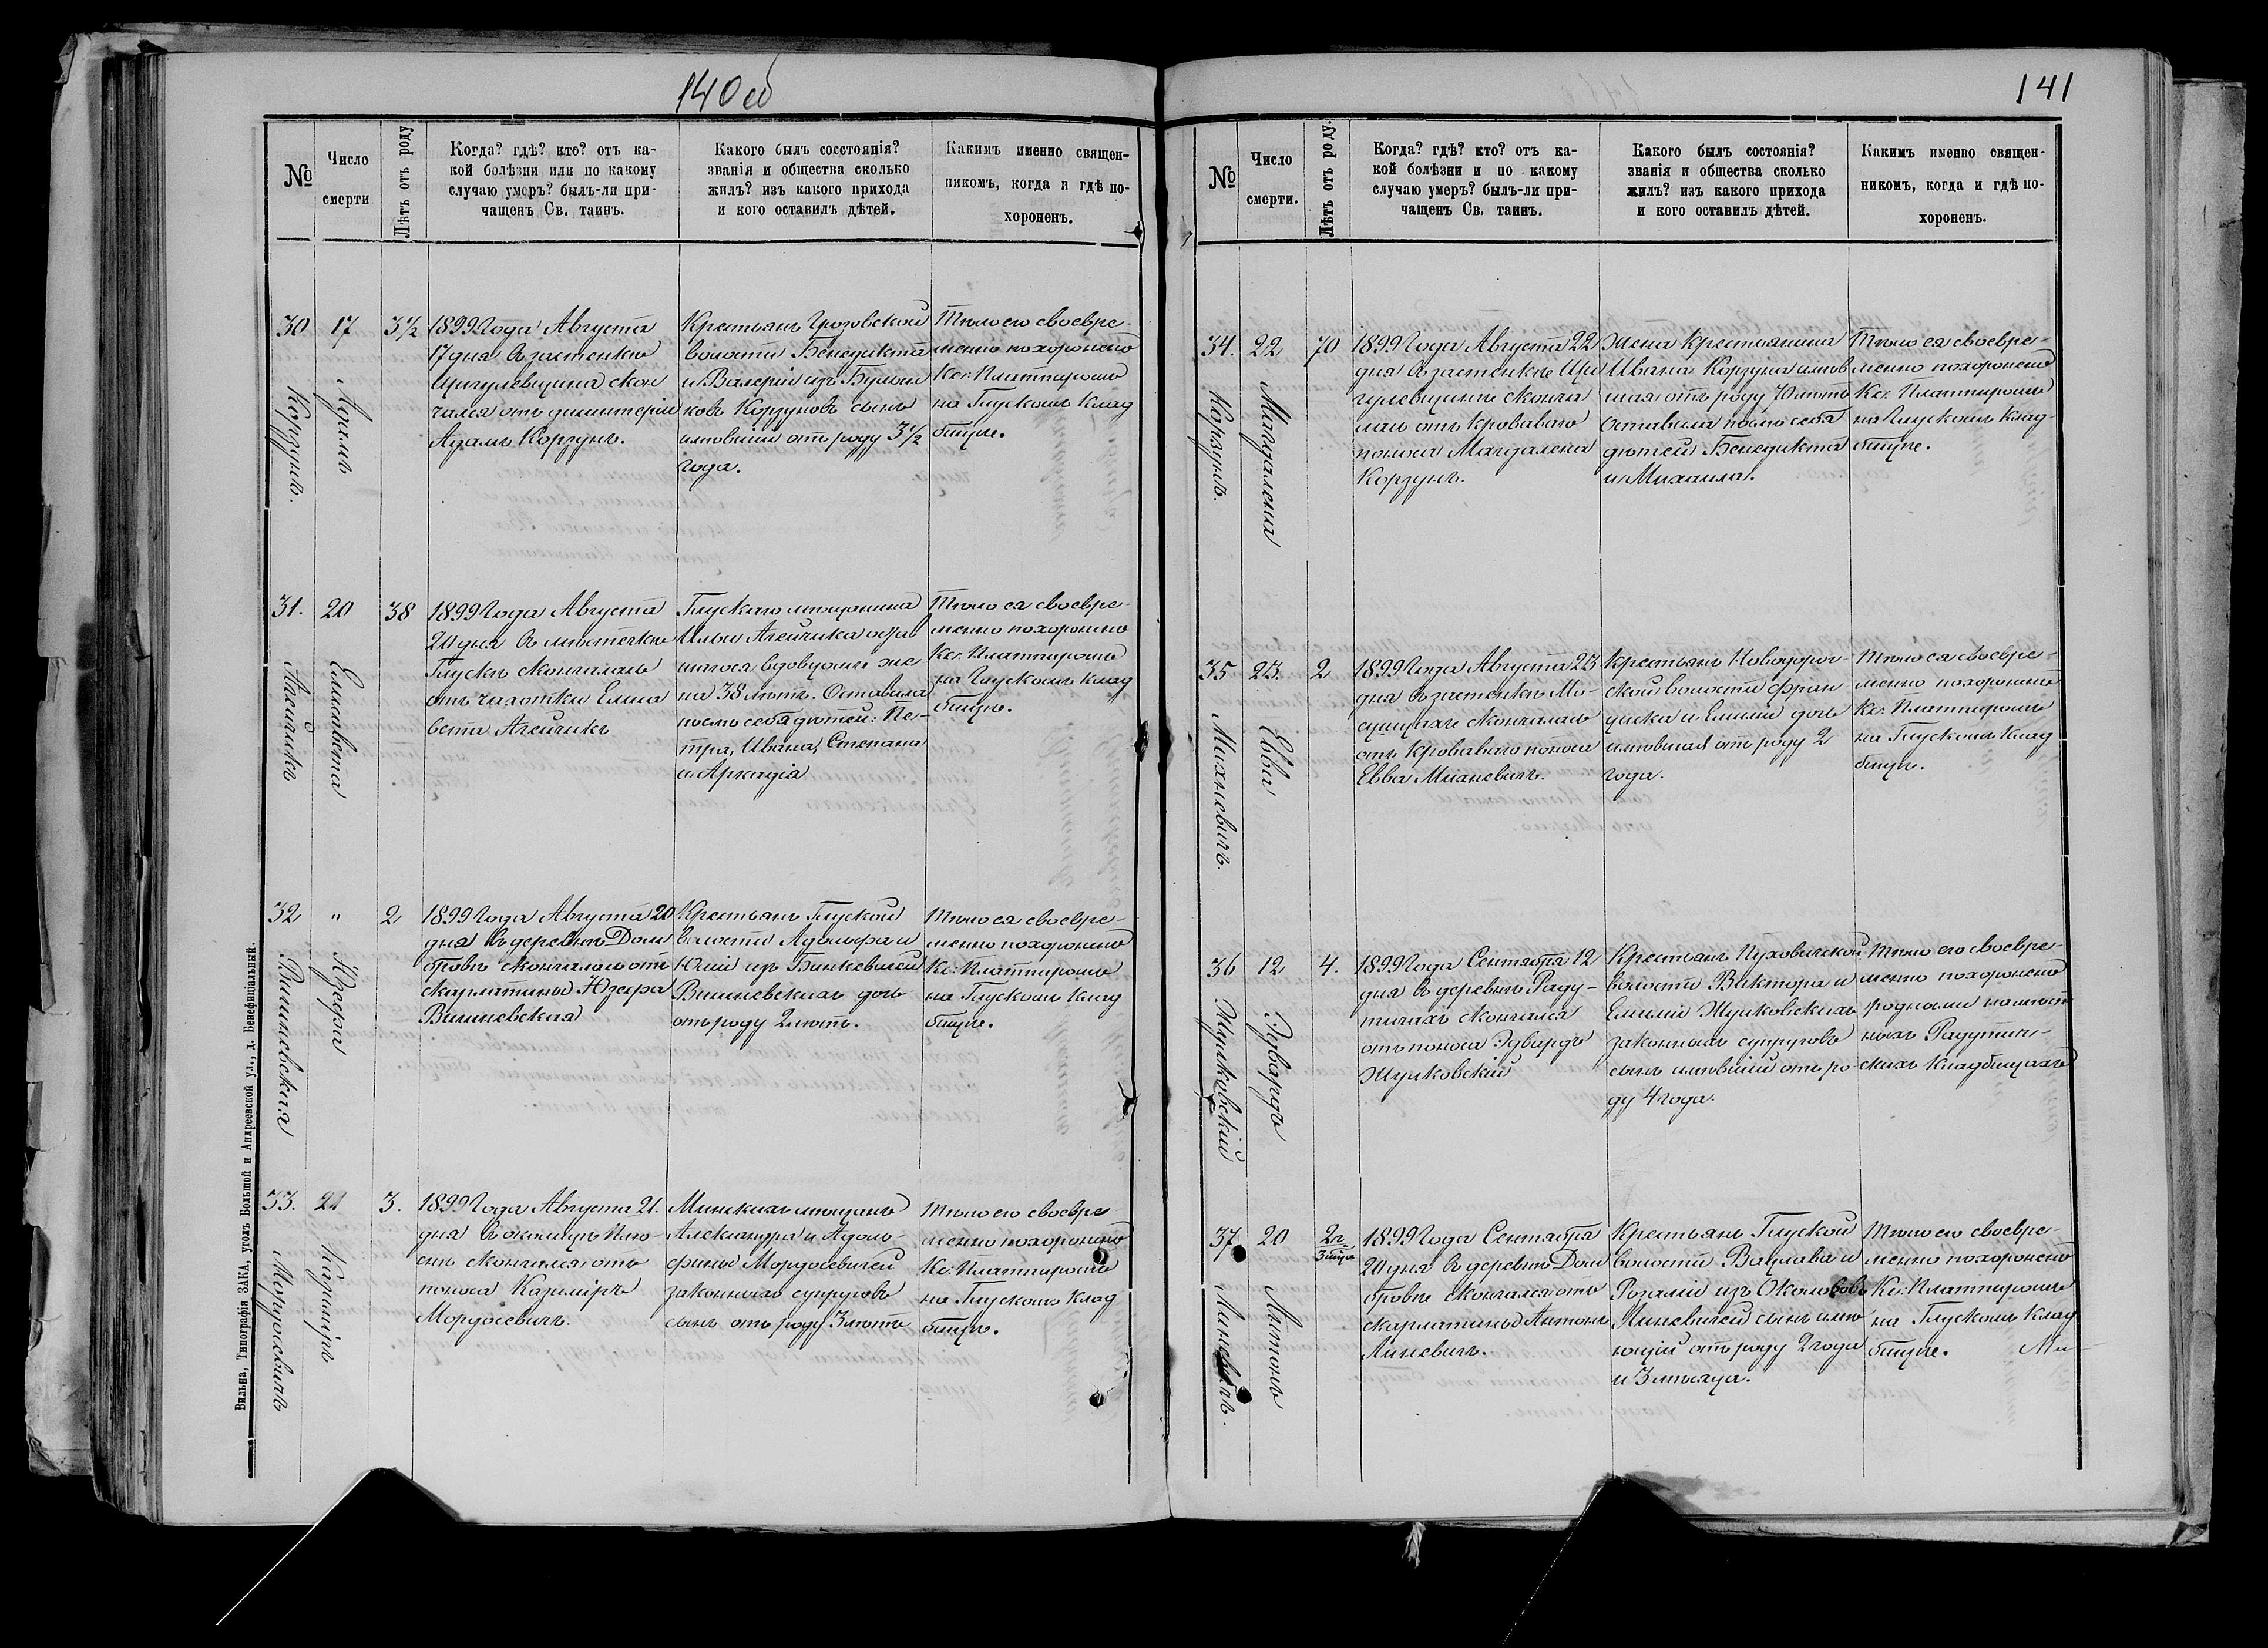 140об
№
Число
смерти
Лѣтъ отъ роду
Когда? гдѣ? кто? отъ ка-
кой болѣзни или по какому
случаю умеръ? былъ-ли при-
чащенъ Св. таинъ.
Какого былъ состоянія?
званія и общества сколько
жилъ? изъ какого прихода
и кого оставилъ дѣтей.
Какимъ именно священ-
никомъ, когда и гдѣ по-
хороненъ.
30
Корзунъ.
17
Адамъ
3½
1899 Года Августа
17 дня въ застенкѣ
скон
чался отъ дизинтеріи
Адамъ Корзунъ.
Крестьянъ Грозовской
волости Бенедикта
и Валеріи изъ
ковъ Корзуновъ сынъ
имѣвший отъ роду 3½
года.
Тѣло его своевре
менно похоронено
Кс. Платпиромъ
на Глускомъ клад
бищѣ.
31.
Агейчикъ
20
Елисавета
38
1899 Года Августа
20 дня въ мѣстечкѣ
Глускъ скончалась
отъ чахотки Елиса
вета Агейчикъ
Глускаго мѣщанина
Ильи Агейчика остав
шагося вдовцомъ же
на 38 лѣтъ. Оставила
послѣ себя дѣтей: Пе-
тра, Ивана, Степана
и Аркадія
Тѣло ея своевре-
менно похоронено
Кс. Платпиромъ
на Глускомъ клад
бищѣ.
32
Вишневская
"
Юзефа
2
1899 Года Августа 20
дня въ деревнѣ Дом
бровѣ скончалась отъ
скарлатины Юзефа
Вишневская
Крестьянъ Глуской
волости Адольфа и
Юліи изъ Бинкевичей
Вишневскихъ дочь
отъ роду 2 лѣтъ.
Тѣло ея своевре-
менно похоронено
Кс. Платпиромъ
на Глускомъ клад
бищѣ.
33.
Мордосевичъ
21
Казимиръ
3.
1899 Года Августа 21.
дня въ околицѣ
скончался отъ
поноса Казимиръ
Мордосевичъ.
Минскихъ мѣщанъ
Александра и Адоль-
фины Мордосевичей
законныхъ супруговъ
сынъ отъ роду 3 лѣтъ
Тѣло его своевре
менно похоронено
Кс. Платпиромъ
на Глускомъ клад
бищѣ.
Вильна, Типографія ЗАКА, уголъ Большой и Андреевской ул., д. Бенефиціальный.
141
№
Число
смерти.
Лѣтъ отъ роду.
Когда? гдѣ? кто? отъ ка-
кой болѣзни и по какому
случаю умеръ? былъ-ли при-
чащенъ Св. таинъ.
Какого былъ состоянія?
званія и общества сколько
жилъ? изъ какого прихода
и кого оставилъ дѣтей.
Какимъ именно священ-
никомъ, когда и гдѣ по-
хороненъ.
34.
Корзунъ.
22
Магдалена
70
1899 Года Августа 22
дня въ застенкѣ
скончa
лась отъ кроваваго
поноса Магдалена
Корзунъ.
Жена крестьянина
Ивана Корзуна имѣв
шая отъ роду 70 лѣтъ
Оставила послѣ себя
дѣтей Бенедикта
и Михаила.
Тѣло ея своевре-
менно похоронено
Кс. Платпиромъ
на Глускомъ клад-
бищѣ.
35
Михневичъ.
23.
Евва
2
1899 Года Августа 23
дня въ застенкѣ
скончалась
отъ кроваваго поноса
Евва
Крестьянъ Новодорог-
ской волости Фран
циска и Емиліи дочь
имѣвшая отъ роду 2
года.
Тѣло ея своевре-
менно похоронено
Кс. Платпиромъ
на Глускомъ клад
бищѣ.
36
Жуковский
12
Эдвардъ
4.
1899 Года Сентября 12
дня въ деревнѣ Раду-
тичахъ скончался
отъ поноса Эдвардъ
Крестьянъ Пуховичской
волости Виктора и
Емиліи
законныхъ супруговъ
сынъ имѣвший отъ ро-
ду 4 года.
Тѣло его своевре-
менно похоронено
родными на мѣст
ныхъ Радутич-
скихъ кладбищахъ
37
Линевичъ.
20
Антонъ
2 г.
3 мѣся
1899 Года Сентября
20 дня въ деревнѣ Дом
бровѣ скончался отъ
скарлатины Антонъ
Линевичъ.
Крестьянъ Глуской
волости Вацлава и
Розаліи изъ
Линевичей сынъ имѣ
ющій отъ роду 2 года
и 3 мѣсяца.
Тѣло его своевре-
менно похоронено
Кс. Платпиромъ
на Глускомъ клад
бищѣ.